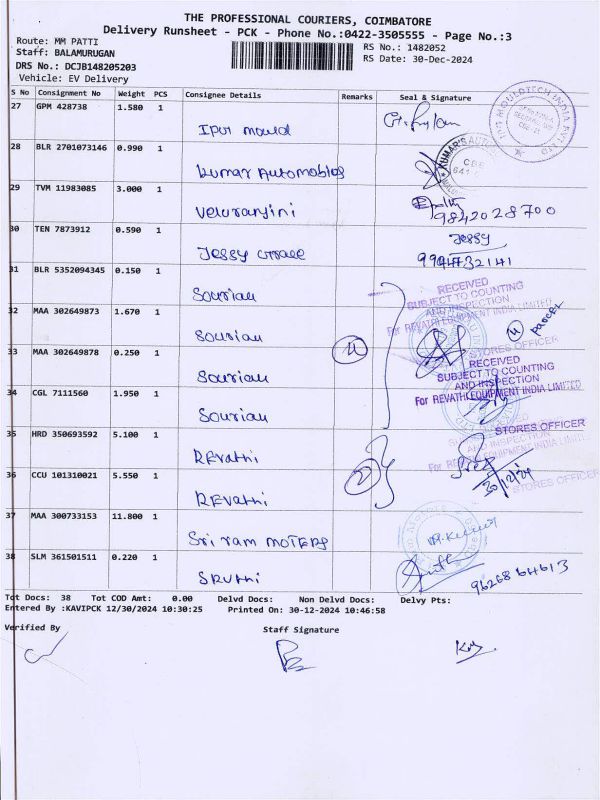 THE PROFESSIONAL COURIERS, COIMBATORE
Delivery Runsheet - PCK - Phone No.:0422-3505555 - Page No.:3
Route: MM PATTI
Staff: BALAMURUGAN
DRS No.: DCJB148205203
Vehicle: EV Delivery
RS No.: 1482052
RS Date: 30-Dec-2024
S No Consignment No Weight PCS Consignee Details Remarks Seal & Signature
27 GPM 428738 1.580 1
Ipui mould
28 BLR 2701073146 0.990 1
Kumar Automobles
KUMAR'S
CBE
29 TVM 11983085 3.000 1
Veluranjini
9842028700
30 TEN 7873912 0.590 1
Jessy
Jessy
9994732141
31 BLR 5352094345 0.150 1
Souriau
RECEIVED
SUBJECT TO COUNTING
AND INSPECTION
For REVATHI EQUIPMENT INDIA LIMITED
32 MAA 302649873 1.670 1
Souriau
4 PARCEL
STORES OFFICER
33 MAA 302649878 0.250 1
Souriau
4
RECEIVED
SUBJECT TO COUNTING
AND INSPECTION
For REVATHI EQUIPMENT INDIA LIMITED
34 CGL 7111560 1.950 1
Souriau
STORES OFFICER
35 HRD 350693592 5.100 1
REvathi
AND INSPECTION
For REVATHI EQUIPMENT INDIA LIMITED
36 CCU 101310021 5.550 1
REvathi
2
30/12/24
STORES OFFICER
37 MAA 300733153 11.800 1
Sri ram MOTERS
M.Kumar
38 SLM 361501511 0.220 1
SRUthi
9626864613
Tot Docs: 38 Tot COD Amt: 0.00 Delvd Docs: Non Delvd Docs: Delvy Pts:
Entered By :KAVIPCK 12/30/2024 10:30:25 Printed On: 30-12-2024 10:46:58
Verified By Staff Signature